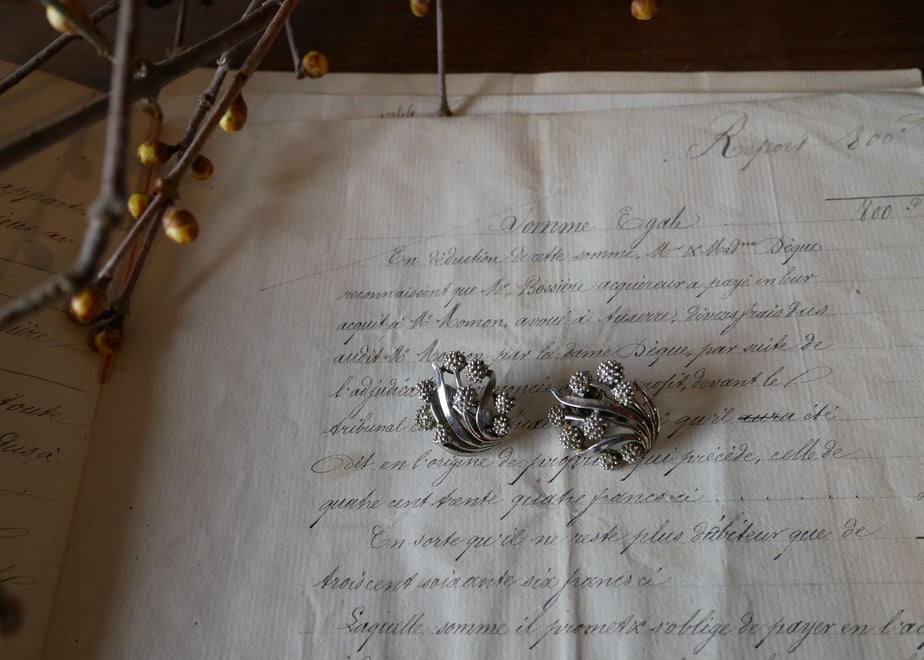 Report 800
800
Somme Egale
En déduction de cette somme, Mr & Madme Dèque
reconnaissent que Mr Bossière acquéreur a payé en leur
acquit à Me Momon, avoué à Auxerre, divers frais dus
audit Me Momon par la dame Dèque, par suite de
l'adjudica noncée profit, devant le
tribunal qu'il aura été
dit en l'origine de propriété qui précède, celle de
quatre cent trente quatre francs ci
En sorte qu'il ne reste plus débiteur que de
trois cent soixante six francs ci
Laquelle somme il promet & s'oblige de payer en l'ac